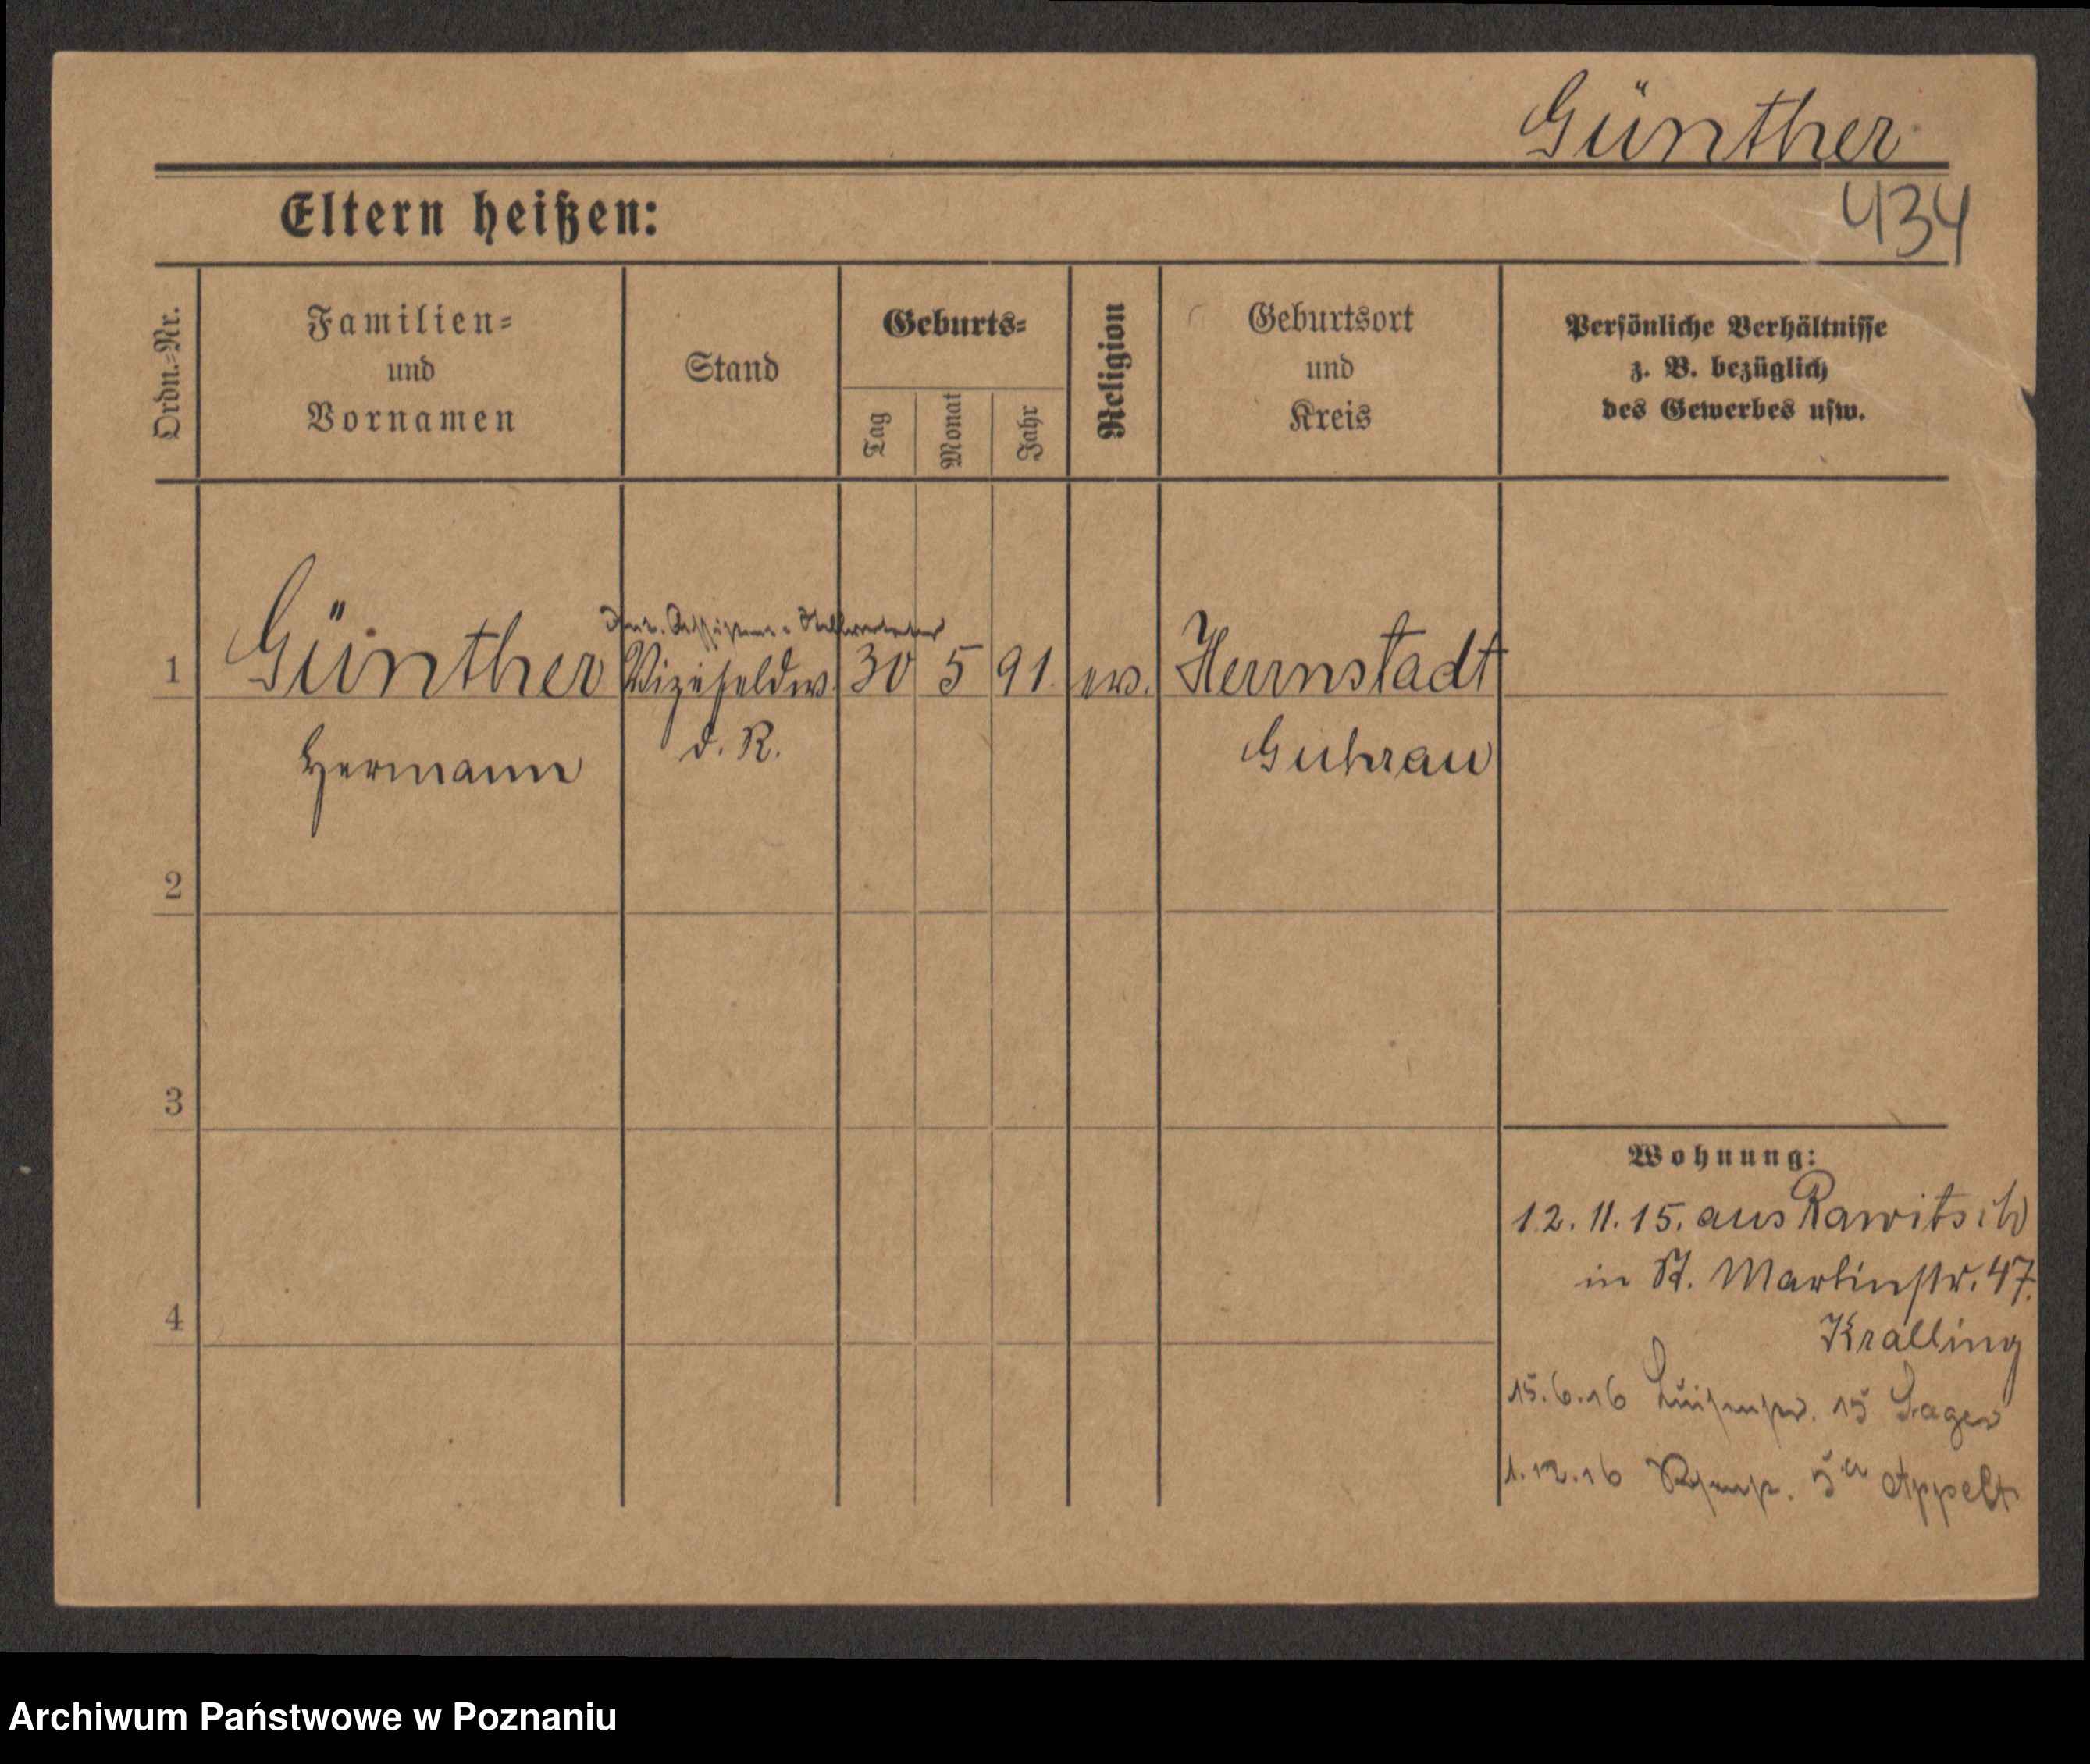 Günther
434
Eltern heißen:
Ordn.=Nr.
Familien=
und
Vornamen
Stand
Geburts=
Tag
Monat
Jahr
Religion
Geburtsort
und
Kreis
Persönliche Verhältnisse
z. B. bezüglich
des Gewerbes usw.
Stellvertreter
1 Günther Vizefeldw. 30 5 91. ev. Herrnstadt
Hermann d. R. Guhrau
2
3
4
Wohnung:
12. 11. 15. aus Rawitsch
in St. Martinstr. 47.
Kralling
15. 6. 16 Luisenstr. 15
1. 12. 16 5a Appelt
Archiwum Państwowe w Poznaniu